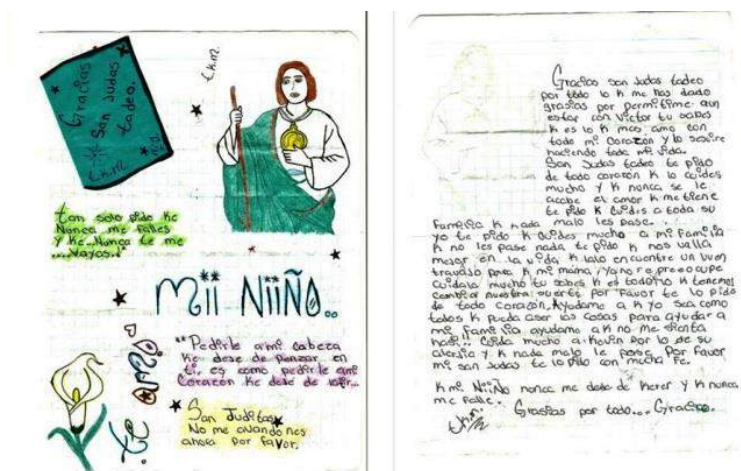 Gracias
San Judas
tadeo.
t.k.m.
t.k.m.
tan solo pido ke
Nunca me falles
y ke..Nunca te me
....Vayas..!
Mii Niiño..
"Pedirle a mi cabeza
ke deje de penzar en
ti, es como pedirle ami
Corazón ke deje de latir...
San Juditas
No me avandones
ahora por favor.
Gracias san Judas tadeo
por todo lo k me has dado
grasias por permitirme aun
estar con Victor tu sabes
k es lo k mas amo con
todo mi Corazón y lo seguire
haciendo toda mi vida.
San Judas tadeo te pido
de todo corazón k lo cuides
mucho y k nunca se le
acabe el amor k me tiene
te pido k cuides a toda su
Familia k nada malo les pase...
yo te pido k cuides mucho a mi familia
k no les pase nada te pido k nos valla
mejor en la vida k lalo encuentre un buen
travajo para k mi mama ya no se preocupe
cuidala mucho tu sabes k es todo k tenemos
cambia nuestra suerte por favor te lo pido
de todo corazón. Ayudame a k yo sea como
todos k pueda aser las cosas para ayudar a
mi familia ayudame a k no me sienta
Cuida mucho a kevin por lo de su
alergia y k nada malo le pase. Por favor
mi san Judas te lo pido con mucha fe.
k mi Niiño nunca me deje de kerer y k nunca
me falle..
Grasias por todo... Gracias.